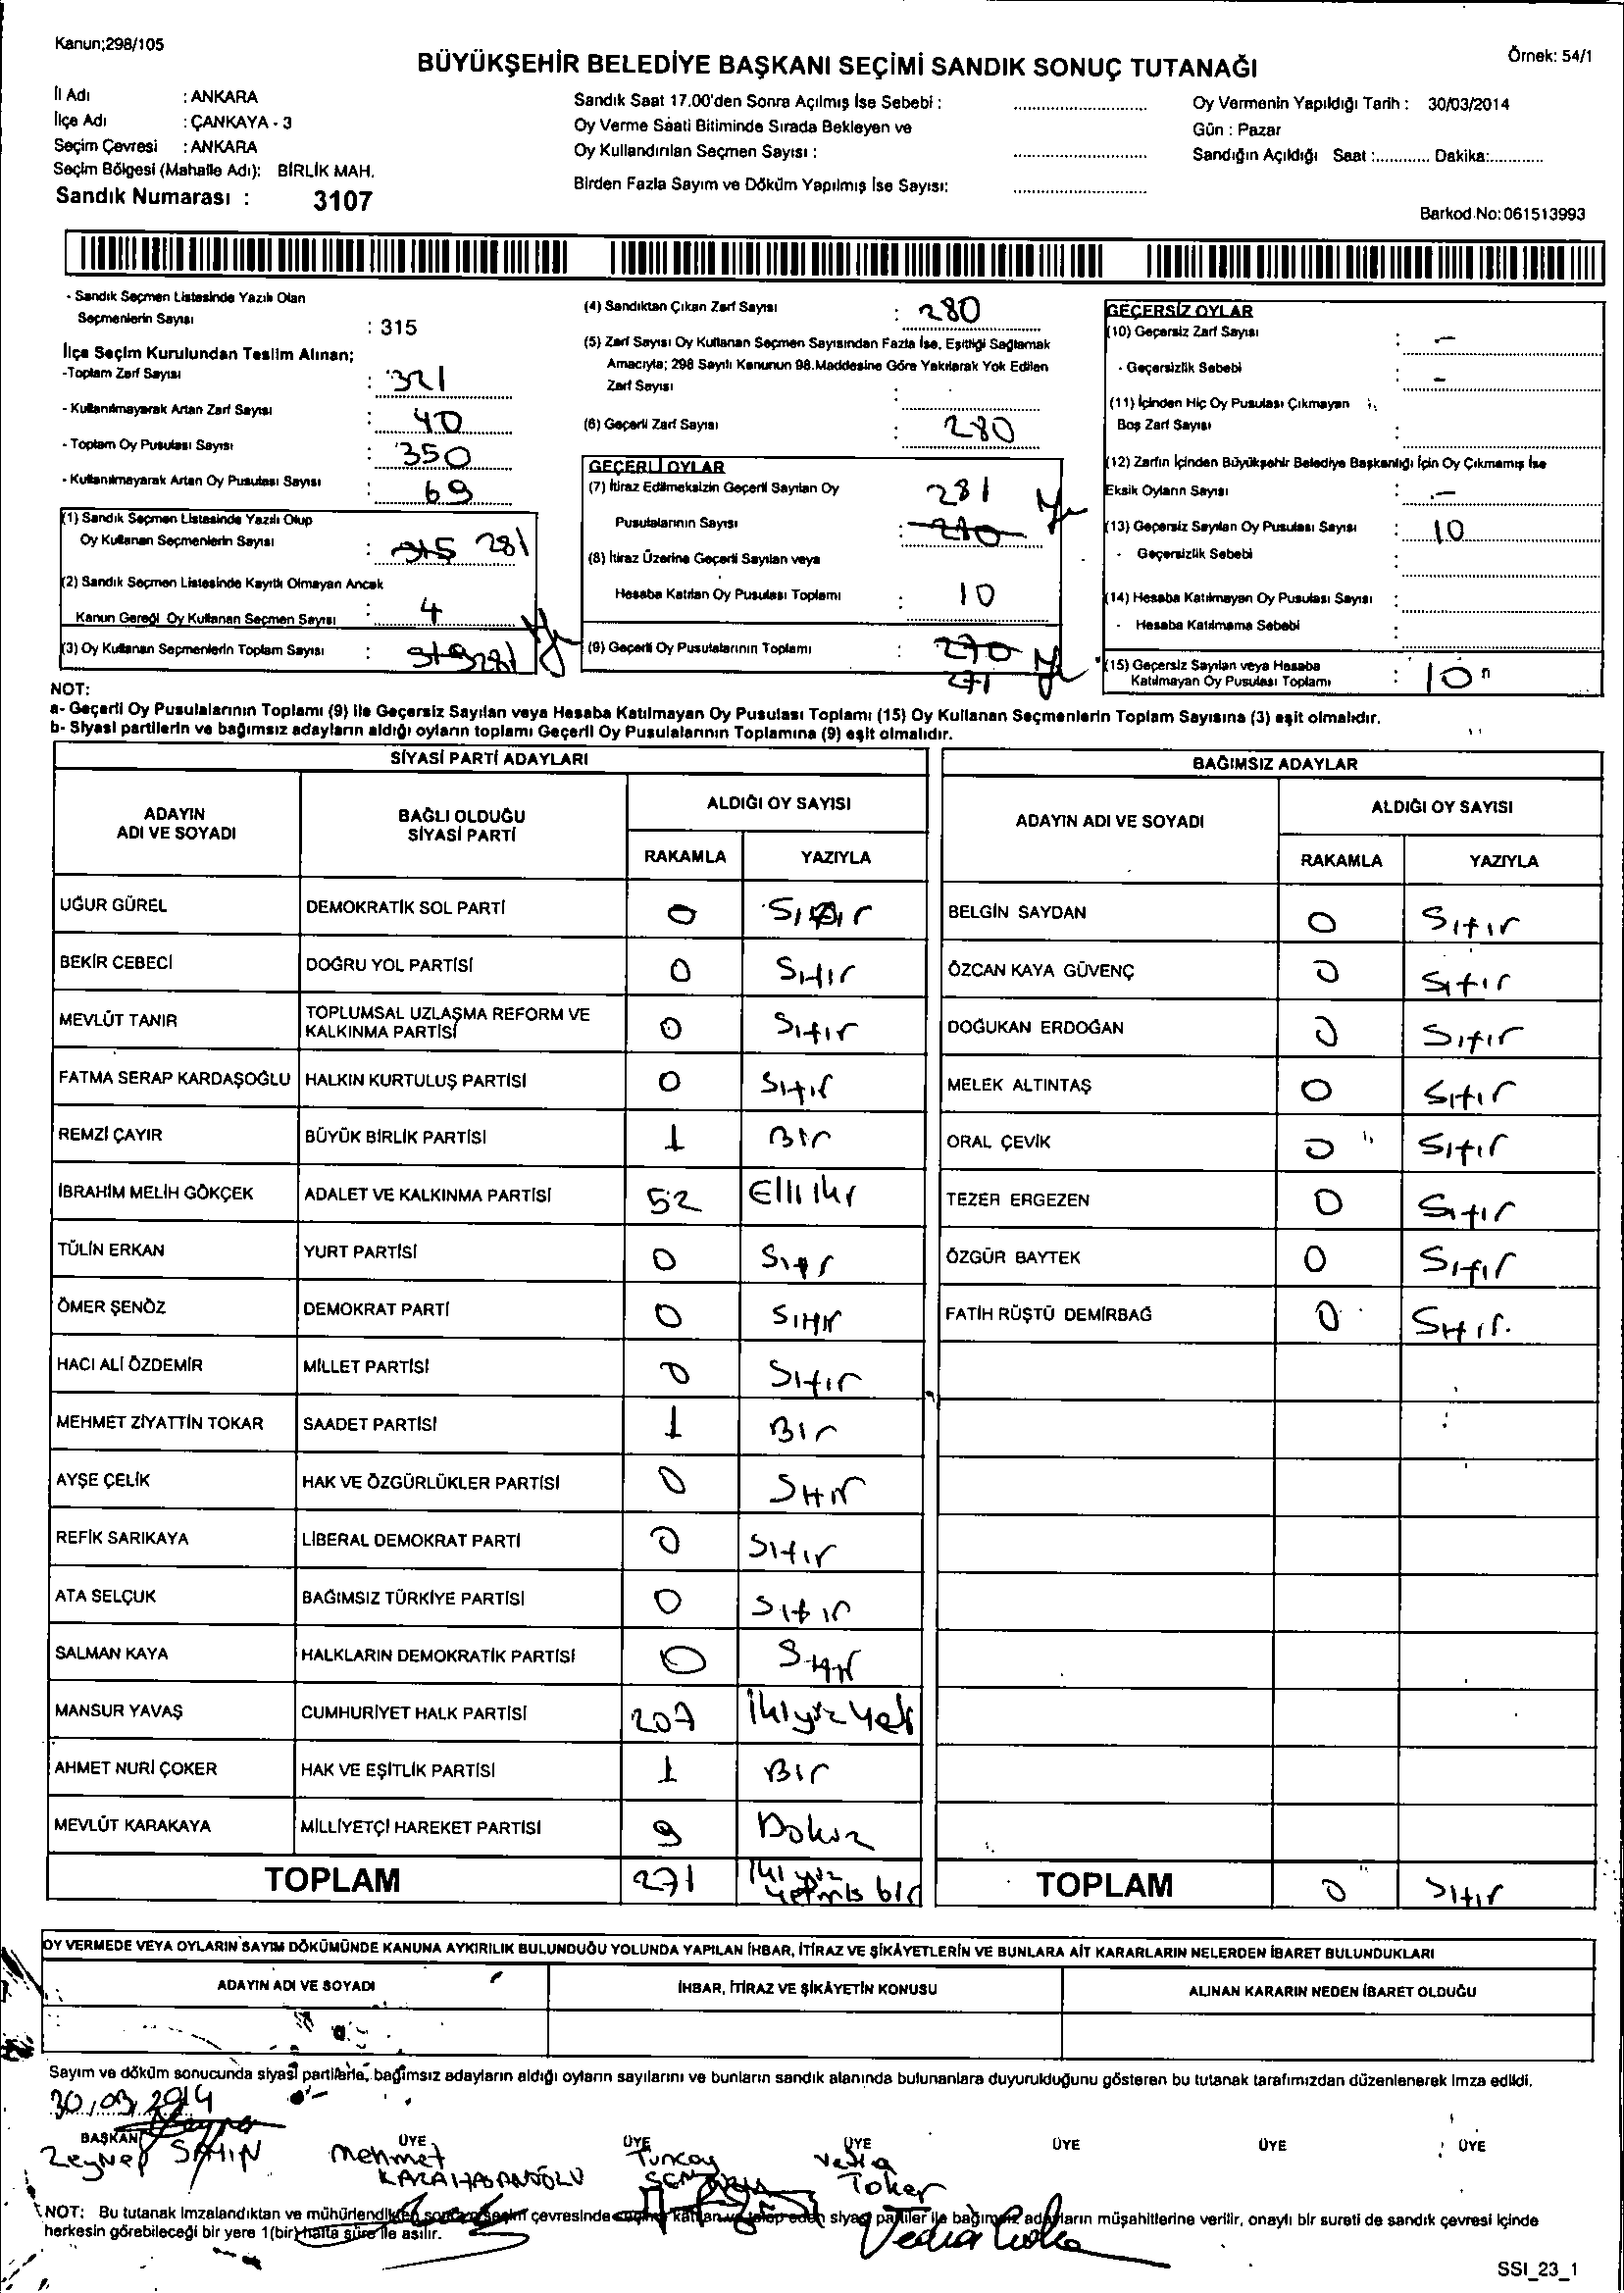 Kanun;298/105
Örnek: 54/1
BÜYÜKŞEHİR BELEDİYE BAŞKANI SEÇİMİ SANDIK SONUÇ TUTANAĞI
İl Adı : ANKARA
İlçe Adı : ÇANKAYA - 3
Seçim Çevresi : ANKARA
Seçim Bölgesi (Mahalle Adı): BİRLİK MAH.
Sandık Numarası : 3107
Sandık Saat 17.00'den Sonra Açılmış İse Sebebi :
Oy Verme Saati Bitiminde Sırada Bekleyen ve
Oy Kullandırılan Seçmen Sayısı :
Birden Fazla Sayım ve Döküm Yapılmış İse Sayısı:
Oy Vermenin Yapıldığı Tarih : 30/03/2014
Gün : Pazar
Sandığın Açıldığı Saat :............ Dakika:............
Barkod No: 061513993
- Sandık Seçmen Listesinde Yazılı Olan
Seçmenlerin Sayısı : 315
İlçe Seçim Kurulundan Teslim Alınan;
-Toplam Zarf Sayısı : 321
- Kullanılmayarak Artan Zarf Sayısı : 40
- Toplam Oy Pusulası Sayısı : 350
- Kullanılmayarak Artan Oy Pusulası Sayısı : 69
(1) Sandık Seçmen Listesinde Yazılı Olup
Oy Kullanan Seçmenlerin Sayısı : 315 281
(2) Sandık Seçmen Listesinde Kayıtlı Olmayan Ancak
Kanun Gereği Oy Kullanan Seçmen Sayısı : 4
(3) Oy Kullanan Seçmenlerin Toplam Sayısı : 319 281
(4) Sandıktan Çıkan Zarf Sayısı : 280
(5) Zarf Sayısı Oy Kullanan Seçmen Sayısından Fazla İse, Eşitliği Sağlamak
Amacıyla; 298 Sayılı Kanunun 98.Maddesine Göre Yakılarak Yok Edilen
Zarf Sayısı :
(6) Geçerli Zarf Sayısı : 280
GEÇERLİ OYLAR
(7) İtiraz Edilmeksizin Geçerli Sayılan Oy 281
Pusulalarının Sayısı :
(8) İtiraz Üzerine Geçerli Sayılan veya
Hesaba Katılan Oy Pusulası Toplamı : 10
(9) Geçerli Oy Pusulalarının Toplamı : 270
271
GEÇERSİZ OYLAR
(10) Geçersiz Zarf Sayısı : -
- Geçersizlik Sebebi : -
(11) İçinden Hiç Oy Pusulası Çıkmayan
Boş Zarf Sayısı :
(12) Zarfın İçinden Büyükşehir Belediye Başkanlığı İçin Oy Çıkmamış İse
Eksik Oyların Sayısı : -
(13) Geçersiz Sayılan Oy Pusulası Sayısı : 10
- Geçersizlik Sebebi :
(14) Hesaba Katılmayan Oy Pusulası Sayısı :
- Hesaba Katılmama Sebebi :
(15) Geçersiz Sayılan veya Hesaba
Katılmayan Oy Pusulası Toplamı : 10
NOT:
a- Geçerli Oy Pusulalarının Toplamı (9) ile Geçersiz Sayılan veya Hesaba Katılmayan Oy Pusulası Toplamı (15) Oy Kullanan Seçmenlerin Toplam Sayısına (3) eşit olmalıdır.
b- Siyasi partilerin ve bağımsız adayların aldığı oyların toplamı Geçerli Oy Pusulalarının Toplamına (9) eşit olmalıdır.
SİYASİ PARTİ ADAYLARI
ADAYIN
ADI VE SOYADI
BAĞLI OLDUĞU
SİYASİ PARTİ
ALDIĞI OY SAYISI
RAKAMLA YAZIYLA
UĞUR GÜREL DEMOKRATİK SOL PARTİ 0 Sıfır
BEKİR CEBECİ DOĞRU YOL PARTİSİ 0 Sıfır
MEVLÜT TANIR TOPLUMSAL UZLAŞMA REFORM VE
KALKINMA PARTİSİ 0 Sıfır
FATMA SERAP KARDAŞOĞLU HALKIN KURTULUŞ PARTİSİ 0 Sıfır
REMZİ ÇAYIR BÜYÜK BİRLİK PARTİSİ 1 Bir
İBRAHİM MELİH GÖKÇEK ADALET VE KALKINMA PARTİSİ 52 Elli iki
TÜLİN ERKAN YURT PARTİSİ 0 Sıfır
ÖMER ŞENÖZ DEMOKRAT PARTİ 0 Sıfır
HACI ALİ ÖZDEMİR MİLLET PARTİSİ 0 Sıfır
MEHMET ZİYATTİN TOKAR SAADET PARTİSİ 1 Bir
AYŞE ÇELİK HAK VE ÖZGÜRLÜKLER PARTİSİ 0 Sıfır
REFİK SARIKAYA LİBERAL DEMOKRAT PARTİ 0 Sıfır
ATA SELÇUK BAĞIMSIZ TÜRKİYE PARTİSİ 0 Sıfır
SALMAN KAYA HALKLARIN DEMOKRATİK PARTİSİ 0 Sıfır
MANSUR YAVAŞ CUMHURİYET HALK PARTİSİ 207 İkiyüz yedi
AHMET NURİ ÇOKER HAK VE EŞİTLİK PARTİSİ 1 Bir
MEVLÜT KARAKAYA MİLLİYETÇİ HAREKET PARTİSİ 9 Dokuz
TOPLAM 271 İkiyüz
yetmiş bir
BAĞIMSIZ ADAYLAR
ADAYIN ADI VE SOYADI
ALDIĞI OY SAYISI
RAKAMLA YAZIYLA
BELGİN SAYDAN 0 Sıfır
ÖZCAN KAYA GÜVENÇ 0 Sıfır
DOĞUKAN ERDOĞAN 0 Sıfır
MELEK ALTINTAŞ 0 Sıfır
ORAL ÇEVİK 0 Sıfır
TEZER ERGEZEN 0 Sıfır
ÖZGÜR BAYTEK 0 Sıfır
FATİH RÜŞTÜ DEMİRBAĞ 0 Sıfır.
TOPLAM 0 Sıfır
OY VERMEDE VEYA OYLARIN SAYIM DÖKÜMÜNDE KANUNA AYKIRILIK BULUNDUĞU YOLUNDA YAPILAN İHBAR, İTİRAZ VE ŞİKÂYETLERİN VE BUNLARA AİT KARARLARIN NELERDEN İBARET BULUNDUKLARI
ADAYIN ADI VE SOYADI İHBAR, İTİRAZ VE ŞİKÂYETİN KONUSU ALINAN KARARIN NEDEN İBARET OLDUĞU
Sayım ve döküm sonucunda siyasi partilerle, bağımsız adayların aldığı oyların sayılarını ve bunların sandık alanında bulunanlara duyurulduğunu gösteren bu tutanak tarafımızdan düzenlenerek imza edildi.
30,03,2014
BAŞKAN ÜYE ÜYE ÜYE ÜYE ÜYE ÜYE
Zeynep ŞAHİN Mehmet Tuncay Vedia
KARAHASANOĞLU Toker
NOT: Bu tutanak imzalandıktan ve mühürlendikten sonra seçim çevresinde seçime katılan ve talep eden siyasi partiler ile bağımsız adayların müşahitlerine verilir, onaylı bir sureti de sandık çevresi içinde
herkesin görebileceği bir yere 1(bir) hafta süre ile asılır.
Vedia Toker
SSI_23_1